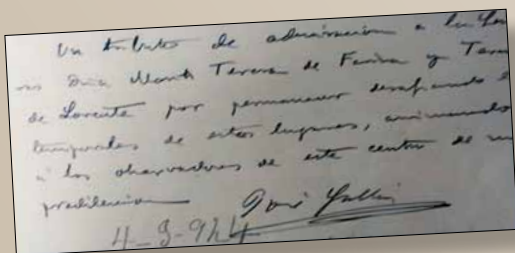 Un tributo de admiracion a las Seño
ras Dña Maria Teresa de Fariña y Teresa
de Lorente por permanecer desafiando l
temporales de estos lugares, animando
a los observadores de este centro de mi
predileccion
José
4-9-924